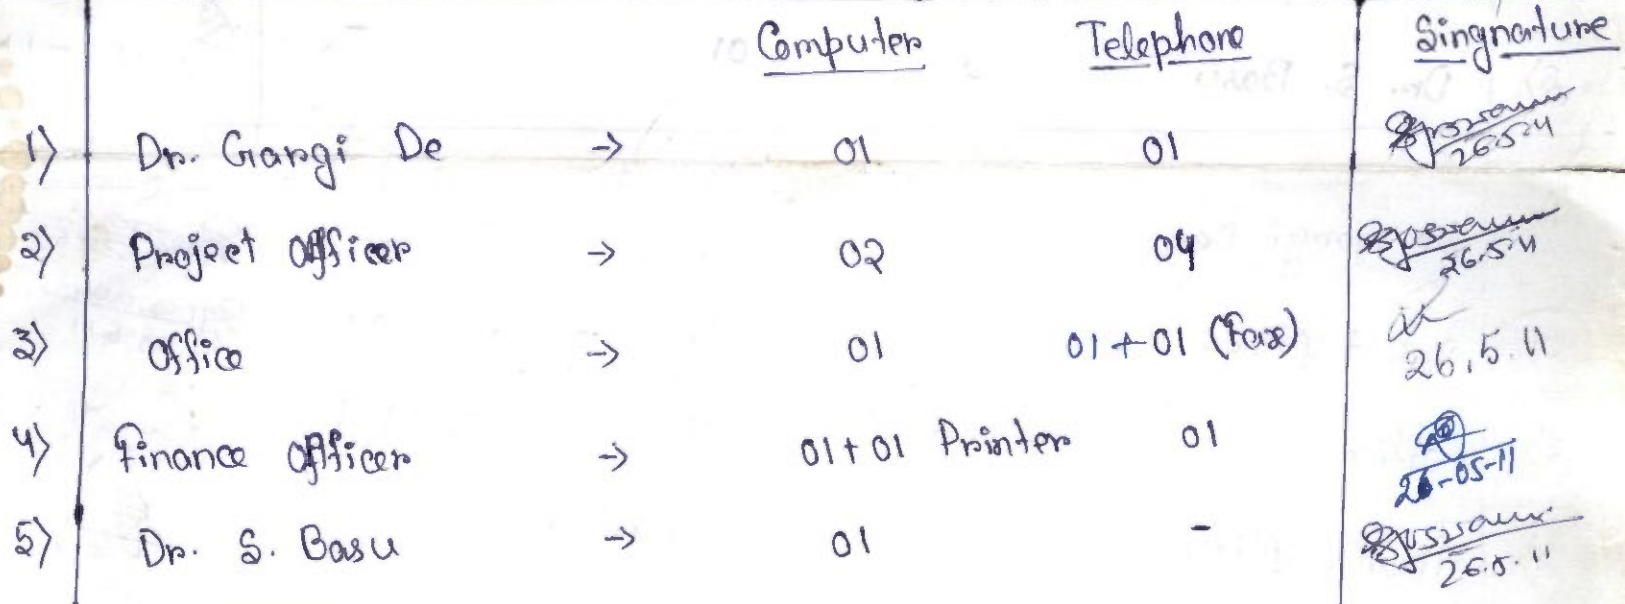 Computer Telephone Singnature
1) Dr. Gargi De → 01 01 26.5.11
2) Project Officer → 02 04 26.5.11
3) Office → 01 01+01 (Fax) 26.5.11
4) Finance Officer → 01+01 Printer 01 26-05-11
5) Dr. S. Basu → 01 - 26.5.11